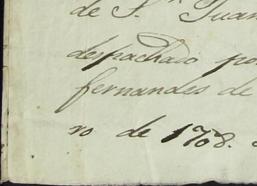 de S.ⁿ Juan
despachado po
fernandes de
ro de 1708.